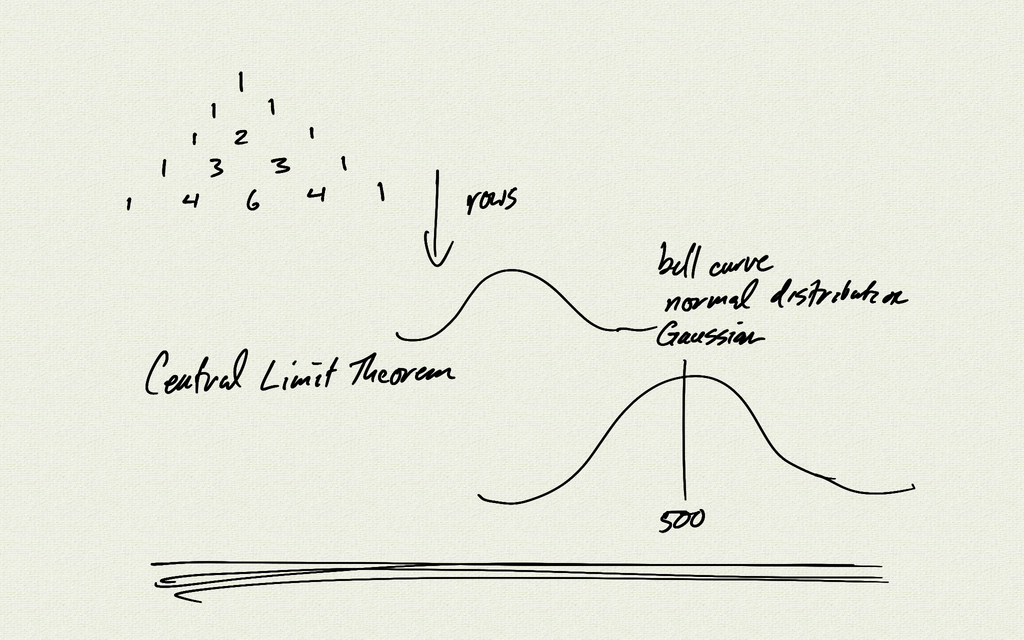 1
1 1
1 2 1
1 3 3 1
1 4 6 4 1
rows
bell curve
normal distribution
Gaussian
Central Limit Theorem
500